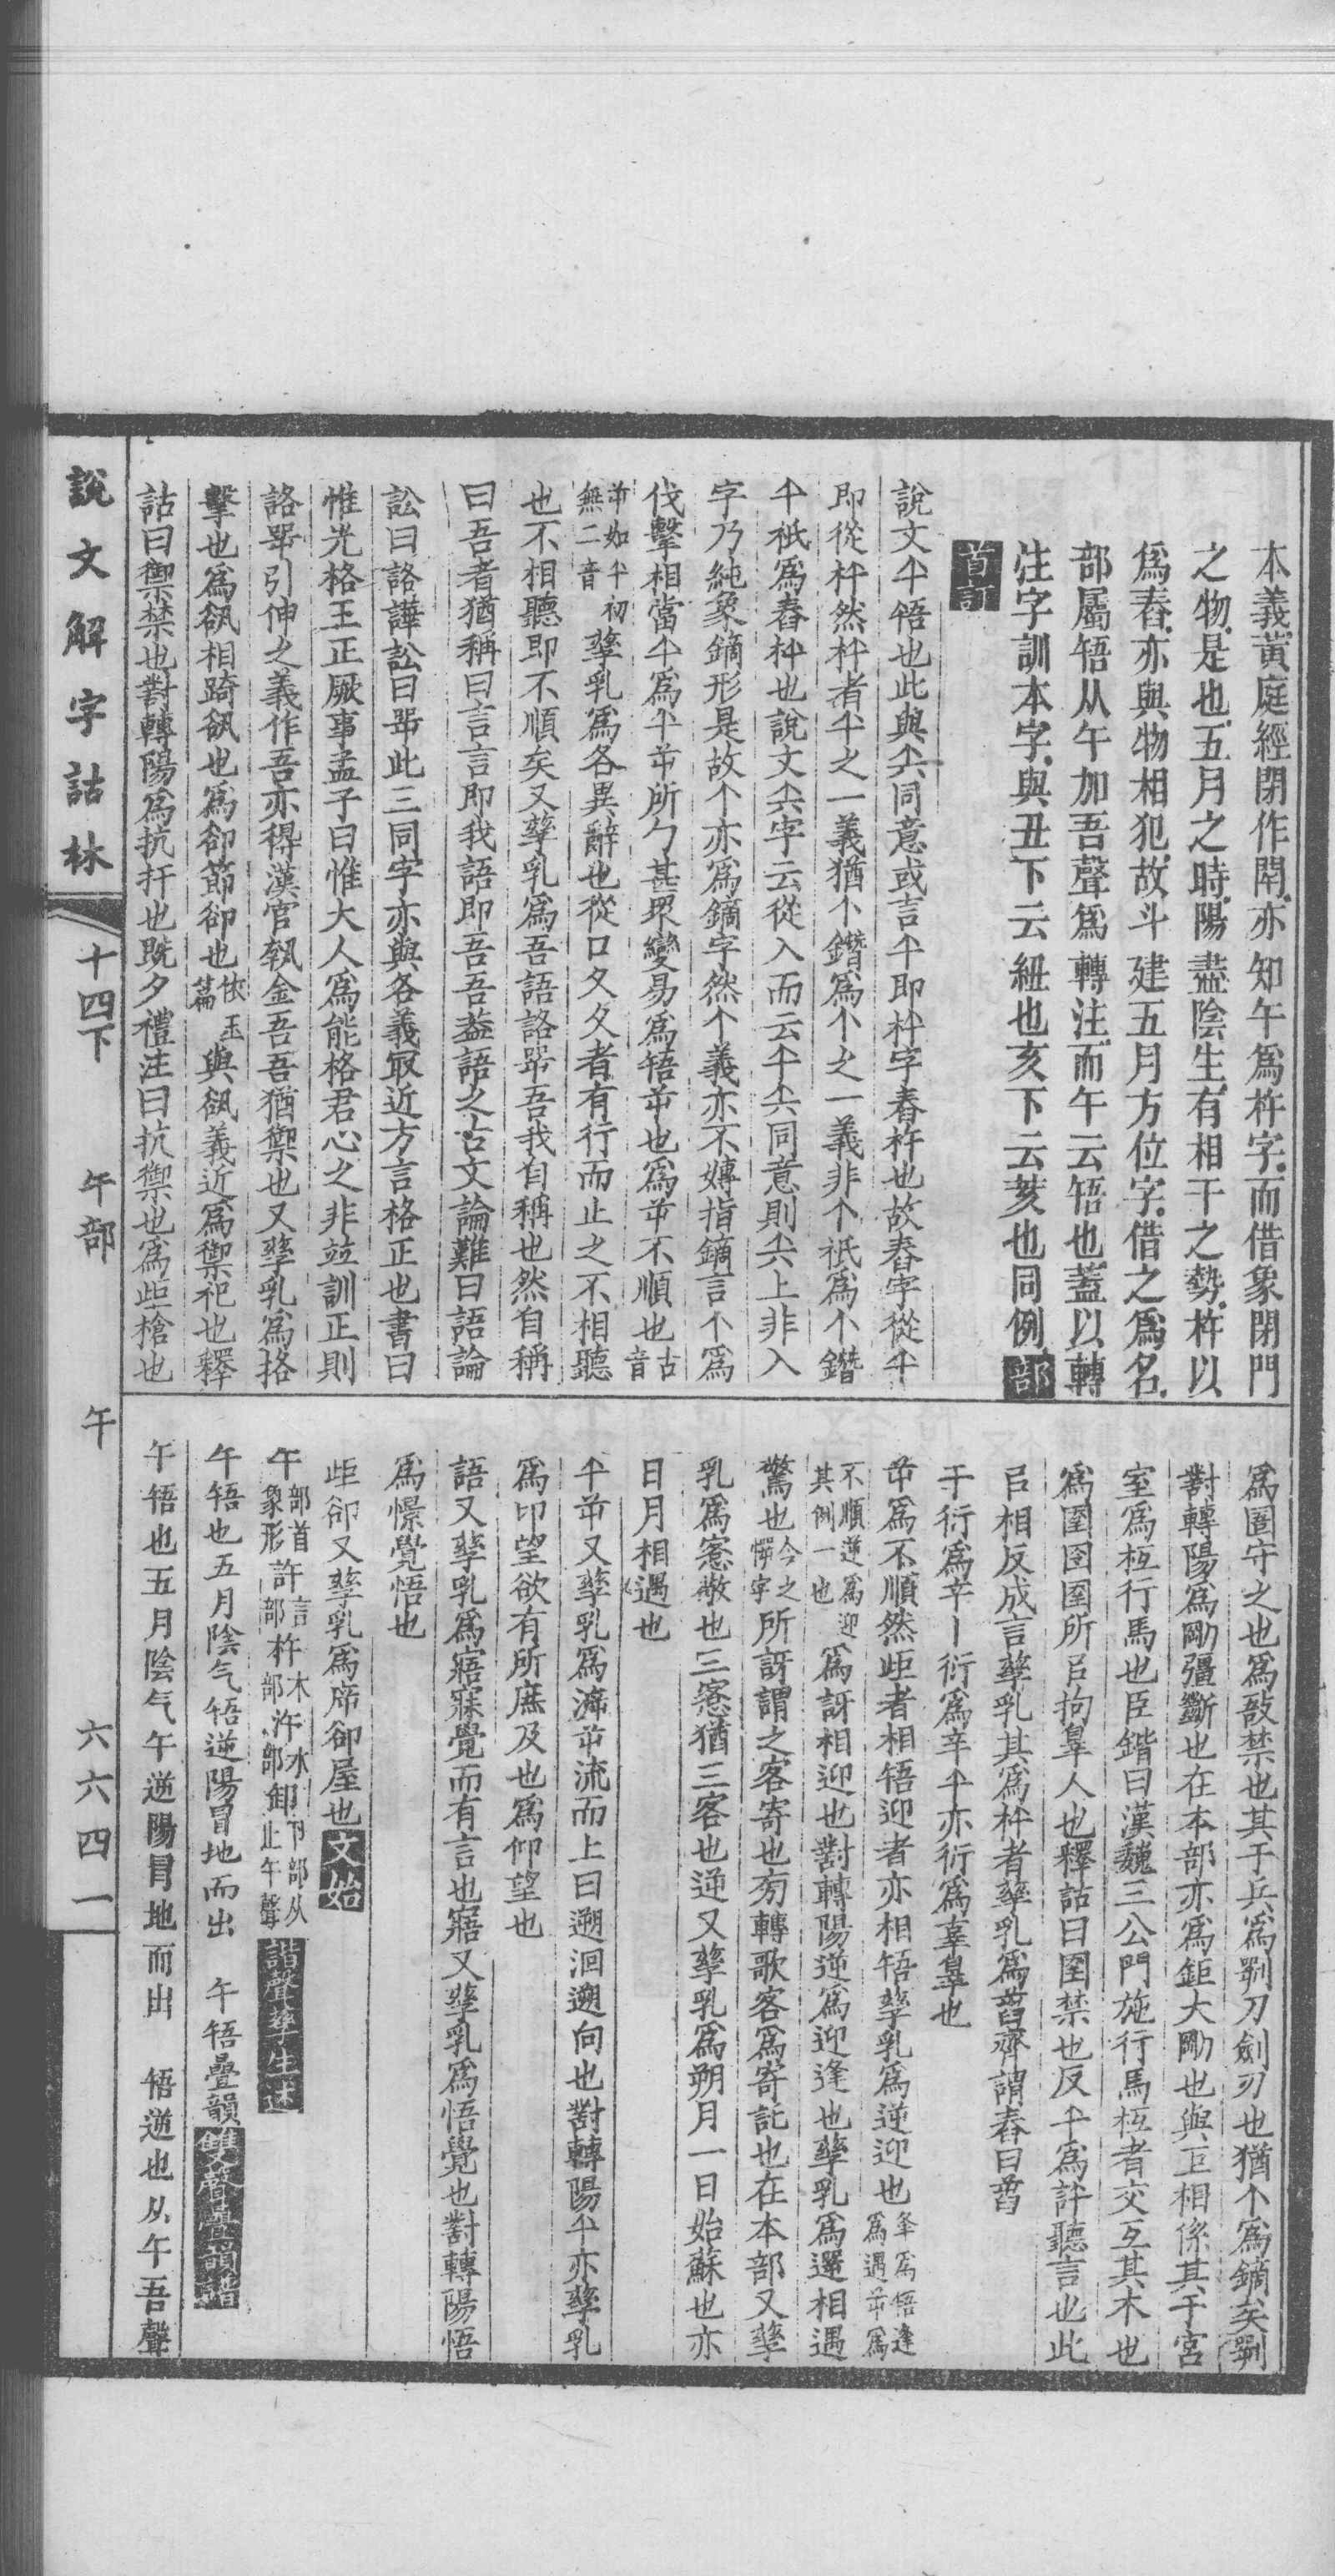 本義黃庭經閉作閈亦知午爲杵字而借象閉門
之物是也五月之時陽盡陰生有相干之勢杵以
爲舂亦與物相犯故斗建五月方位字借之爲名
部屬啎从午加吾聲爲轉注而午云啎也蓋以轉
注字訓本字與丑下云紐也亥下云荄也同例部
首訂
說文午啎也此與矢同意或言午即杵字舂杵也故舂字從午
即從杵然杵者午之一義猶个鐕爲个之一義非个衹爲个鐕
午衹爲舂杵也說文矢字云從入而云午矢同意則矢上非入
字乃純象鏑形是故个亦爲鏑字然个義亦不嫥指鏑言个爲
伐擊相當午爲午屰所勹甚眾變易爲啎屰也爲屰不順也古音
屰如午初無二音孳乳爲各異辭也從口夂夂者有行而止之不相聽
也不相聽即不順矣又孳乳爲吾語詻咢吾我自稱也然自稱
曰吾者猶稱曰言言即我語即吾吾葢語之古文論難曰語論
訟曰詻譁訟曰咢此三同字亦與各義取近方言格正也書曰
惟先格王正厥事孟子曰惟大人爲能格君心之非竝訓正則
詻咢引伸之義作吾亦得漢官執金吾吾猶禦也又孳乳爲挌
擊也爲㕁相踦㕁也爲卻節卻也依玉篇與㕁義近爲禦祀也釋
詁曰禦禁也對轉陽爲抗扞也既夕禮注曰抗禦也爲歫槍也
爲圉守之也爲敔禁也其于兵爲㓷刀劍刃也猶个爲鏑矣㓷
對轉陽爲剛彊斷也在本部亦爲鉅大剛也與互相係其于宮
室爲枑行馬也臣鍇曰漢魏三公門施行馬枑者交互其木也
爲圉囹圉所㠯拘辠人也釋詁曰圉禁也反午爲許聽言也此
㠯相反成言孳乳其爲杵者孳乳爲䑔齊謂舂曰䑔
干衍爲䇂丨衍爲辛午亦衍爲辜辠也
屰爲不順然歫者相啎迎者亦相啎孳乳爲逆迎也夆爲啎逢爲遇屰爲
不順逆爲迎其例一也爲訝相迎也對轉陽逆爲迎逢也孳乳爲遻相遇
驚也今之愕字所訝謂之客寄也旁轉歌客爲寄託也在本部又孳
乳爲愙敬也三愙猶三客也逆又孳乳爲朔月一日始蘇也亦
日月相遇也
午屰又孳乳爲㴑屰流而上曰遡洄遡向也對轉陽午亦孳乳
爲卬望欲有所庶及也爲仰望也
語又孳乳爲寤寐覺而有言也寤又孳乳爲悟覺也對轉陽悟
爲憬覺悟也
歫卻又孳乳爲㡿卻屋也文始
午部首象形許言部杵木部汻水部卸卩部从止午聲諧聲孳生述
午啎也五月陰气啎逆陽冒地而出　午啎疊韻雙聲疊韻譜
午啎也五月陰气午逆陽冒地而出　啎逆也从午吾聲
說文解字詁林
十四下
午部
午
六六四一